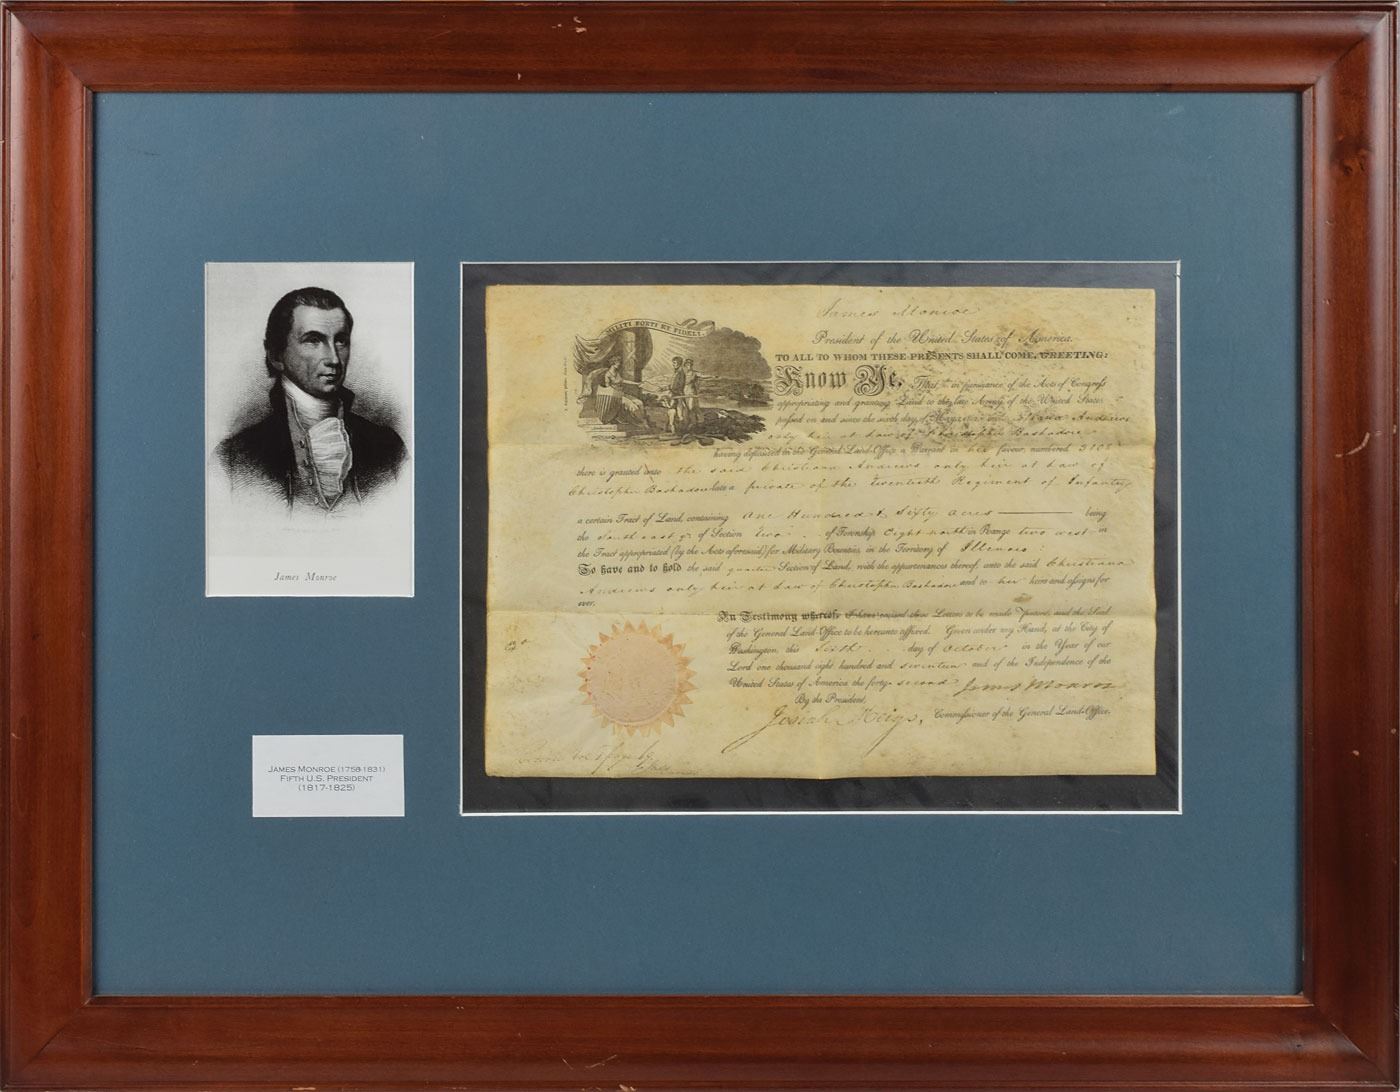 James Monroe
JAMES MONROE (1758-1831)
FIFTH U.S. PRESIDENT
(1817-1825)
MILITI FORTI ET FIDELI.
James Monroe
President of the United States of America.
TO ALL TO WHOM THESE PRESENTS SHALL COME, GREETING:
Know Ye, That in pursuance of the Acts of Congress
appropriating and granting Land to the late Army of the United States
passed on and since the sixth day of Andrews
only heir at Law of Christopher Bashadore
having deposited in the General Land-Office a Warrant in her favour, numbered
there is granted unto the said Christiana Andrews only heir at Law of
Christopher Bashadore late a private of the twentieth Regiment of Infantry
a certain Tract of Land, containing One Hundred & Sixty acres being
the South east qr of Section two of Township Eight north in Range two west in
the Tract appropriated (by the Acts aforesaid) for Military Bounties, in the Territory of Illinois:
To have and to hold the said quarter Section of Land, with the appurtenances thereof, unto the said Christiana
Andrews only heir at Law of Christopher Bashadore and to her heirs and assigns for
ever.
In Testimony whereof, I have caused these Letters to be made patent, and the Seal
of the General Land-Office to be hereunto affixed. Given under my Hand, at the City of
Washington, this Sixth day of October in the Year of our
Lord one thousand eight hundred and seventeen and of the Independence of the
United States of America the forty-second James Monroe
By the President,
Josiah Meigs, Commissioner of the General Land-Office.